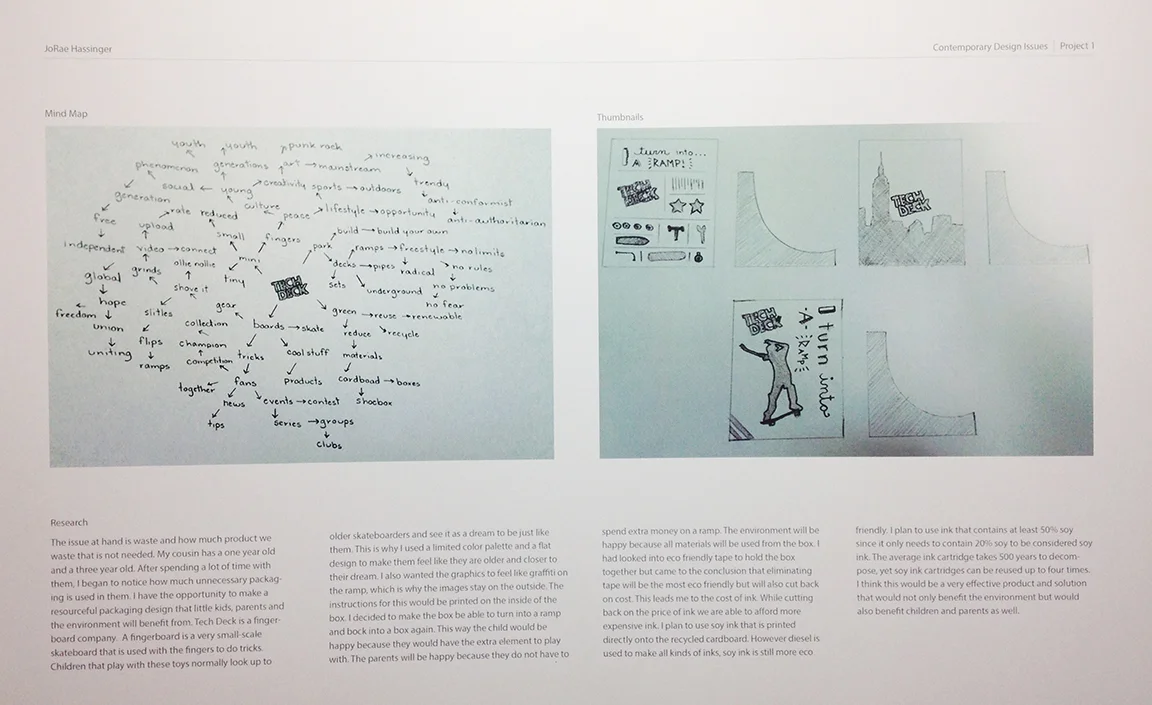 JoRae Hassinger
Contemporary Design Issues | Project 1
Mind Map
Thumbnails
youth youth punk rock
phenomenon generations art mainstream increasing
social young creativity sports outdoors trendy
generation culture peace lifestyle opportunity anti-conformist
free rate reduced anti-authoritarian
upload small fingers build build your own
independent video connect park ramps freestyle no limits
global grinds ollie nollie mini decks pipes radical no rules
shove it tiny TECH DECK sets underground no problems
hope no fear
freedom slitles gear green reuse renewable
union collection boards skate reduce recycle
uniting flips champion tricks cool stuff materials
ramps competition
together fans products cardboad boxes
news events contest shoebox
tips series groups
clubs
I turn into...
A RAMP!
TECH DECK
TECH DECK
TECH DECK
I turn into
A RAMP
Research
The issue at hand is waste and how much product we
waste that is not needed. My cousin has a one year old
and a three year old. After spending a lot of time with
them, I began to notice how much unnecessary packag-
ing is used in them. I have the opportunity to make a
resourceful packaging design that little kids, parents and
the environment will benefit from. Tech Deck is a finger-
board company. A fingerboard is a very small-scale
skateboard that is used with the fingers to do tricks.
Children that play with these toys normally look up to
older skateboarders and see it as a dream to be just like
them. This is why I used a limited color palette and a flat
design to make them feel like they are older and closer to
their dream. I also wanted the graphics to feel like graffiti on
the ramp, which is why the images stay on the outside. The
instructions for this would be printed on the inside of the
box. I decided to make the box be able to turn into a ramp
and bock into a box again. This way the child would be
happy because they would have the extra element to play
with. The parents will be happy because they do not have to
spend extra money on a ramp. The environment will be
happy because all materials will be used from the box. I
had looked into eco friendly tape to hold the box
together but came to the conclusion that eliminating
tape will be the most eco friendly but will also cut back
on cost. This leads me to the cost of ink. While cutting
back on the price of ink we are able to afford more
expensive ink. I plan to use soy ink that is printed
directly onto the recycled cardboard. However diesel is
used to make all kinds of inks, soy ink is still more eco
friendly. I plan to use ink that contains at least 50% soy
since it only needs to contain 20% soy to be considered soy
ink. The average ink cartridge takes 500 years to decom-
pose, yet soy ink cartridges can be reused up to four times.
I think this would be a very effective product and solution
that would not only benefit the environment but would
also benefit children and parents as well.